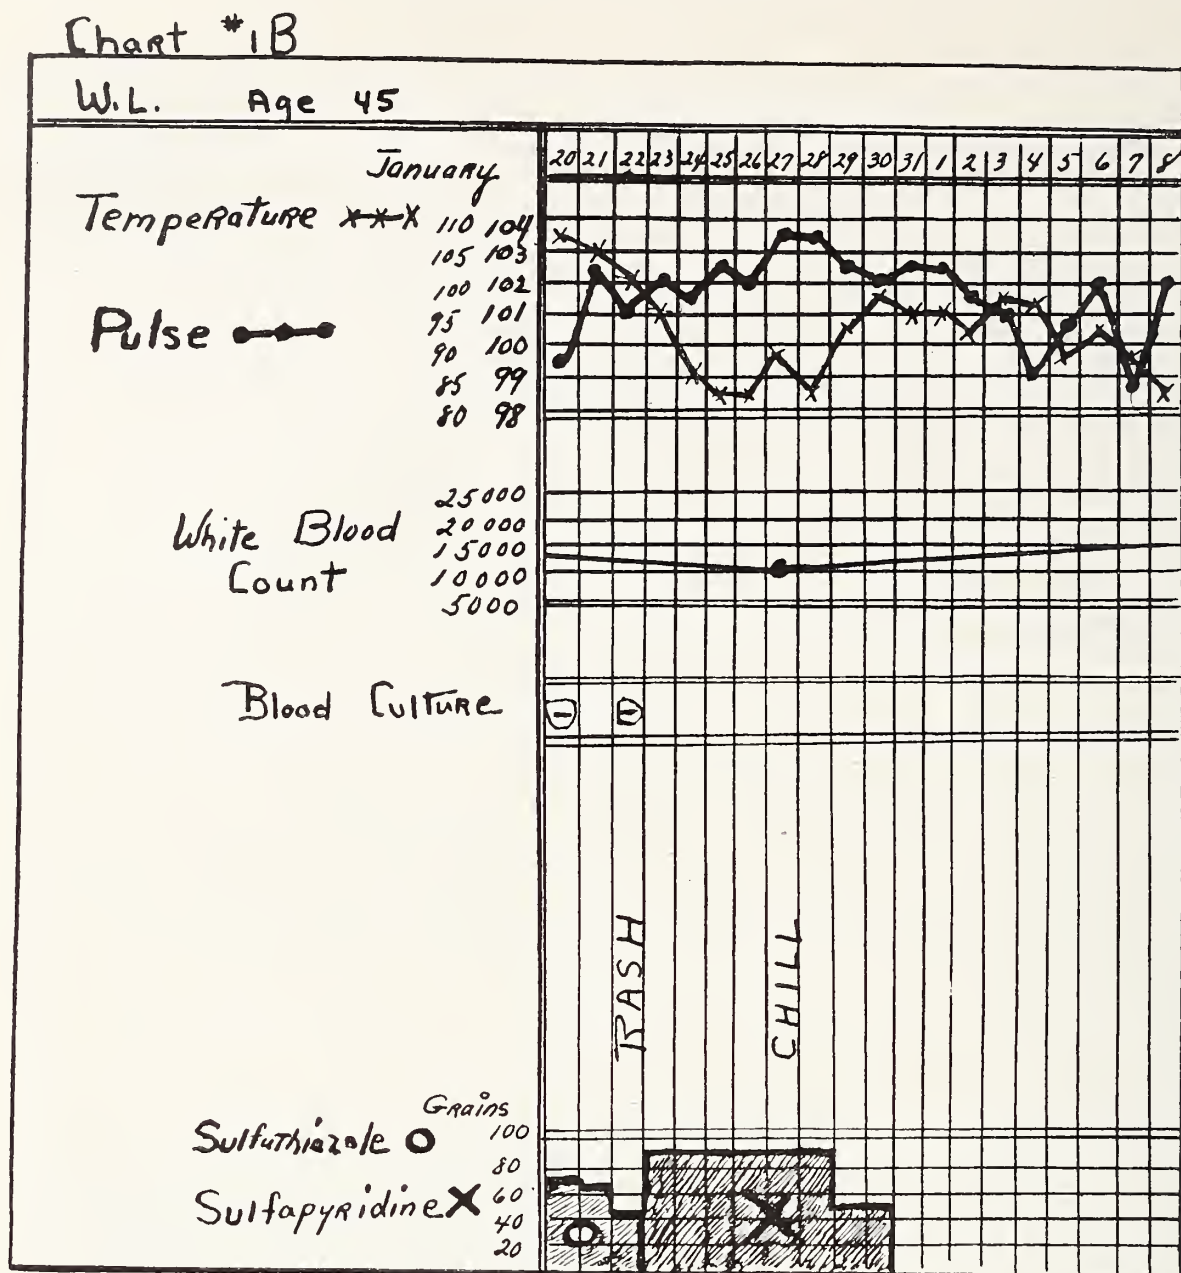 Chart #1B
W.L. Age 45
January 20 21 22 23 24 25 26 27 28 29 30 31 1 2 3 4 5 6 7 8
Temperature x-x-x 110 104
105 103
100 102
Pulse 95 101
90 100
85 99
80 98
25000
White Blood 20000
15000
Count 10000
5000
Blood Culture - -
RASH
CHILL
Grains
Sulfathiazole O 100
80
Sulfapyridine X 60
40
20
O X